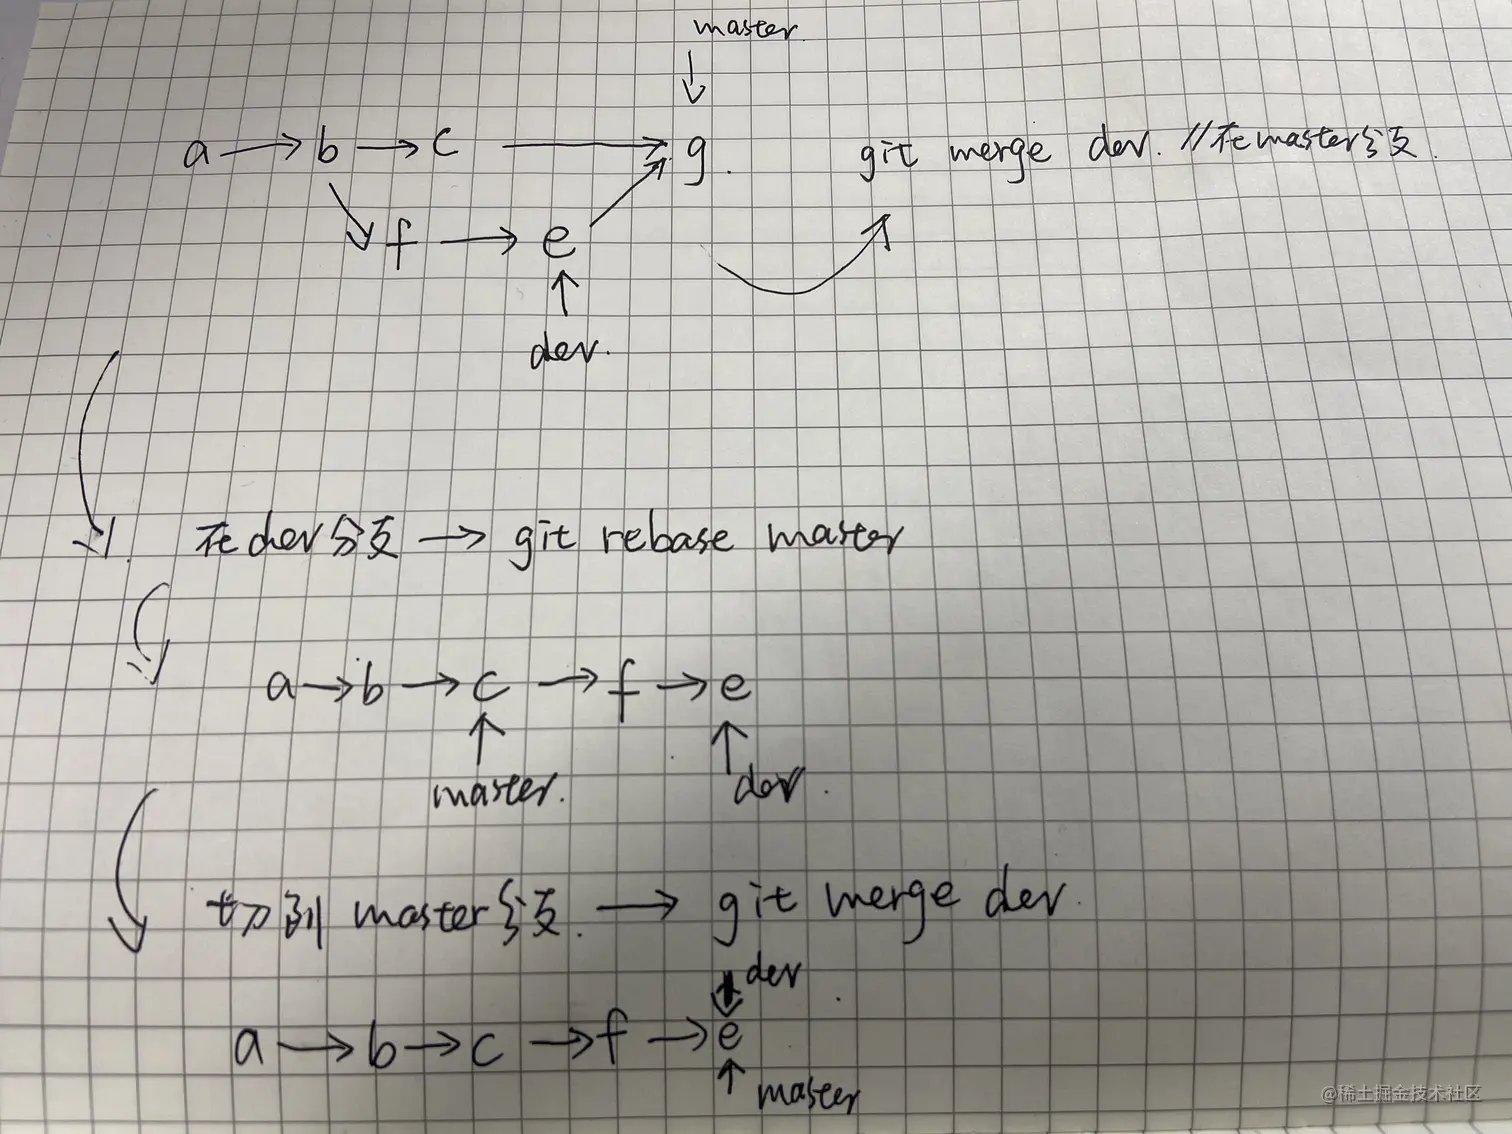 master
a → b → c → g. git merge dev. //在master分支.
f → e
dev.
在dev分支 → git rebase master
a → b → c → f → e
master. dev.
切到master分支. → git merge dev.
dev
a → b → c → f → e
master
@稀土掘金技术社区